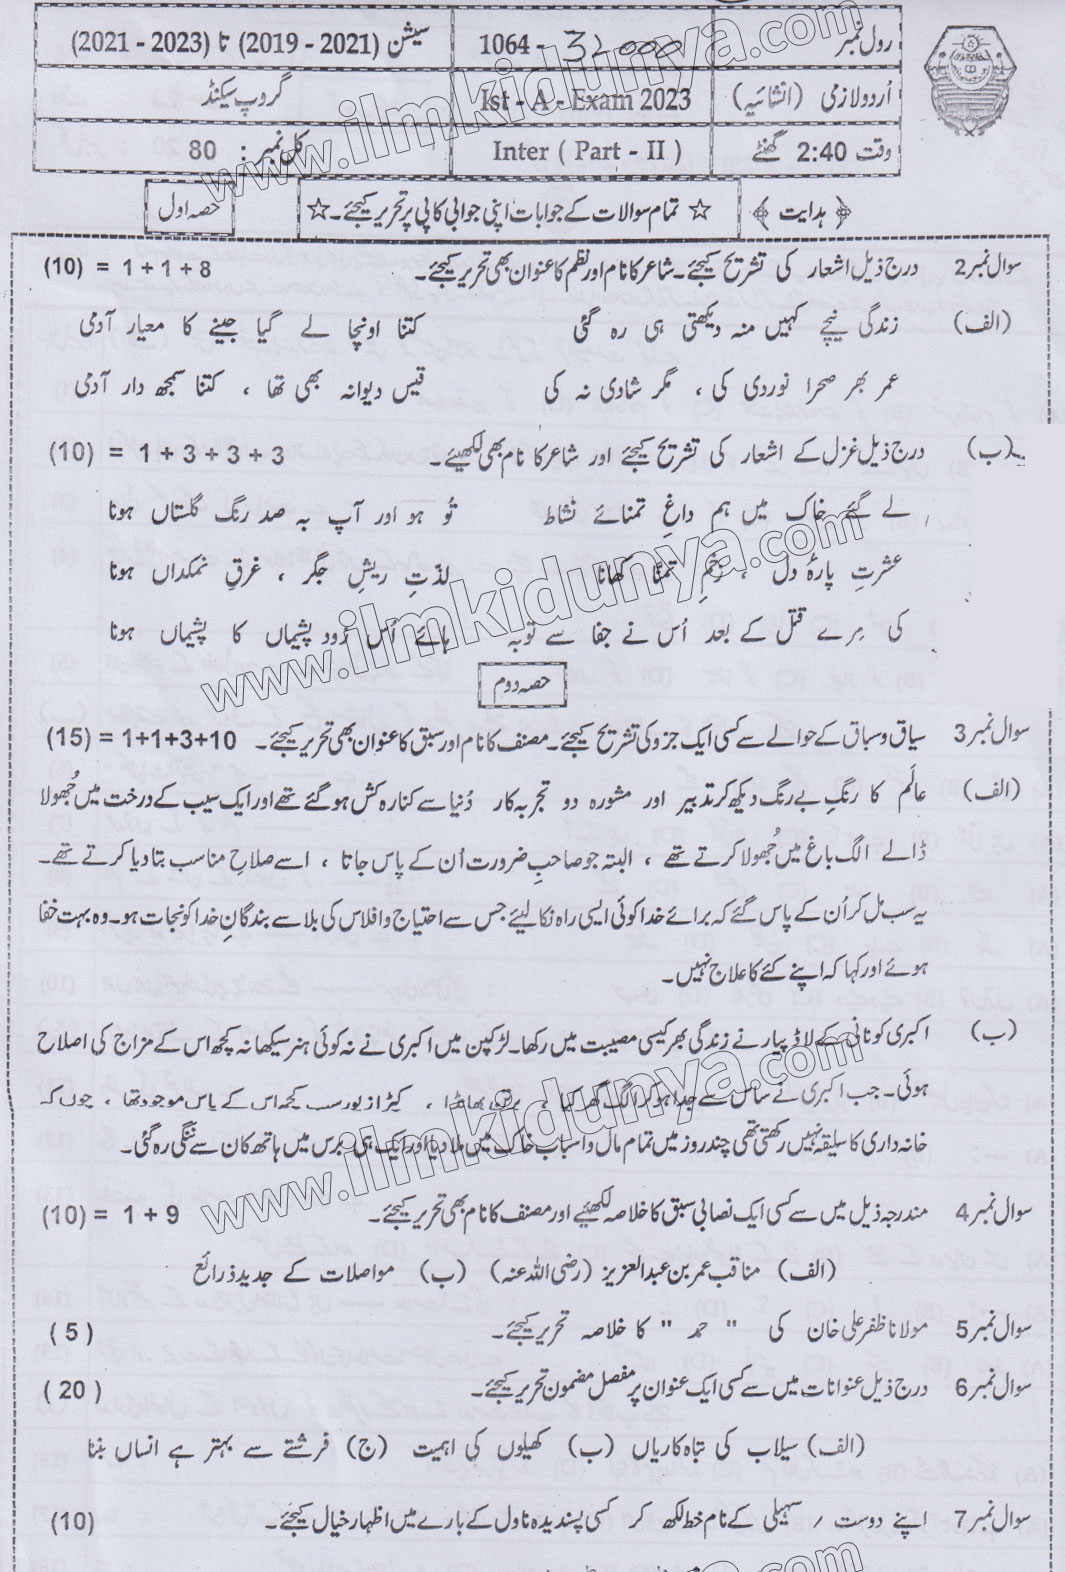 رول نمبر 1064 - 32000 سیشن (2021 - 2019) تا (2023 - 2021)
اُردو لازمی (انشائیہ) Ist - A - Exam 2023 گروپ سیکنڈ
وقت 2:40 گھنٹے Inter ( Part - II ) کل نمبر : 80
﴿ ہدایت ﴾ ☆ تمام سوالات کے جوابات اپنی جوابی کاپی پر تحریر کیجئے۔ ☆ حصہ اول
سوال نمبر 2 درج ذیل اشعار کی تشریح کیجئے۔ شاعر کا نام اور نظم کا عنوان بھی تحریر کیجئے۔ (10) = 1 + 1 + 8
(الف) زندگی نیچے کہیں منہ دیکھتی ہی رہ گئی کتنا اونچا لے گیا جینے کا معیار آدمی
عمر بھر صحرا نوردی کی ، مگر شادی نہ کی قیس دیوانہ بھی تھا ، کتنا سمجھ دار آدمی
(ب) درج ذیل غزل کے اشعار کی تشریح کیجئے اور شاعر کا نام بھی لکھیئے۔ (10) = 1 + 3 + 3 + 3
لے گئے خاک میں ہم داغِ تمنائے نشاط تُو ہو اور آپ بہ صد رنگ گلستاں ہونا
عشرتِ پارۂ دل ، زخمِ تمنّا کھانا لذّتِ ریشِ جگر ، غرقِ نمکداں ہونا
کی مِرے قتل کے بعد اُس نے جفا سے توبہ ہائے اُس زود پشیماں کا پشیماں ہونا
حصہ دوم
سوال نمبر 3 سیاق و سباق کے حوالے سے کسی ایک جزو کی تشریح کیجئے۔ مصنف کا نام اور سبق کا عنوان بھی تحریر کیجئے۔ (15) = 1+1+3+10
(الف) عالَم کا رنگِ بے رنگ دیکھ کر تدبیر اور مشورہ دو تجربہ کار دُنیا سے کنارہ کش ہو گئے تھے اور ایک سیب کے درخت میں جُھولا
ڈالے الگ باغ میں جُھولا کرتے تھے ، البتہ جو صاحبِ ضرورت اُن کے پاس جاتا ، اسے صلاحِ مناسب بتا دیا کرتے تھے۔
یہ سب مل کر اُن کے پاس گئے کہ برائے خدا کوئی ایسی راہ نکالیئے جس سے احتیاج و افلاس کی بلا سے بندگانِ خدا کو نجات ہو۔ وہ بہت خفا
ہوئے اور کہا کہ اپنے کئے کا علاج نہیں۔
(ب) اکبری کو نانی کے لاڈ پیار نے زندگی بھر کیسی مصیبت میں رکھا۔ لڑکپن میں اکبری نے نہ کوئی ہنر سیکھا نہ کچھ اس کے مزاج کی اصلاح
ہوئی۔ جب اکبری نے ساس سے جدا ہو کر الگ گھر کیا ، برتن بھانڈا ، کپڑا زیور سب کچھ اس کے پاس موجود تھا ، چوں کہ
خانہ داری کا سلیقہ نہیں رکھتی تھی چند روز میں تمام مال و اسباب خاک میں ملا دیا اور ایک ہی برس میں ہاتھ کان سے ننگی رہ گئی۔
سوال نمبر 4 مندرجہ ذیل میں سے کسی ایک نصابی سبق کا خلاصہ لکھیئے اور مصنف کا نام بھی تحریر کیجئے۔ (10) = 1 + 9
(الف) مناقب عمر بن عبدالعزیز (رضی اللہ عنہ) (ب) مواصلات کے جدید ذرائع
سوال نمبر 5 مولانا ظفر علی خان کی " حمد " کا خلاصہ تحریر کیجئے۔ ( 5 )
سوال نمبر 6 درج ذیل عنوانات میں سے کسی ایک عنوان پر مفصل مضمون تحریر کیجئے۔ ( 20 )
(الف) سیلاب کی تباہ کاریاں (ب) کھیلوں کی اہمیت (ج) فرشتے سے بہتر ہے انساں بننا
سوال نمبر 7 اپنے دوست / سہیلی کے نام خط لکھ کر کسی پسندیدہ ناول کے بارے میں اظہار خیال کیجئے۔ (10)
www.ilmkidunya.com
www.ilmkidunya.com
www.ilmkidunya.com